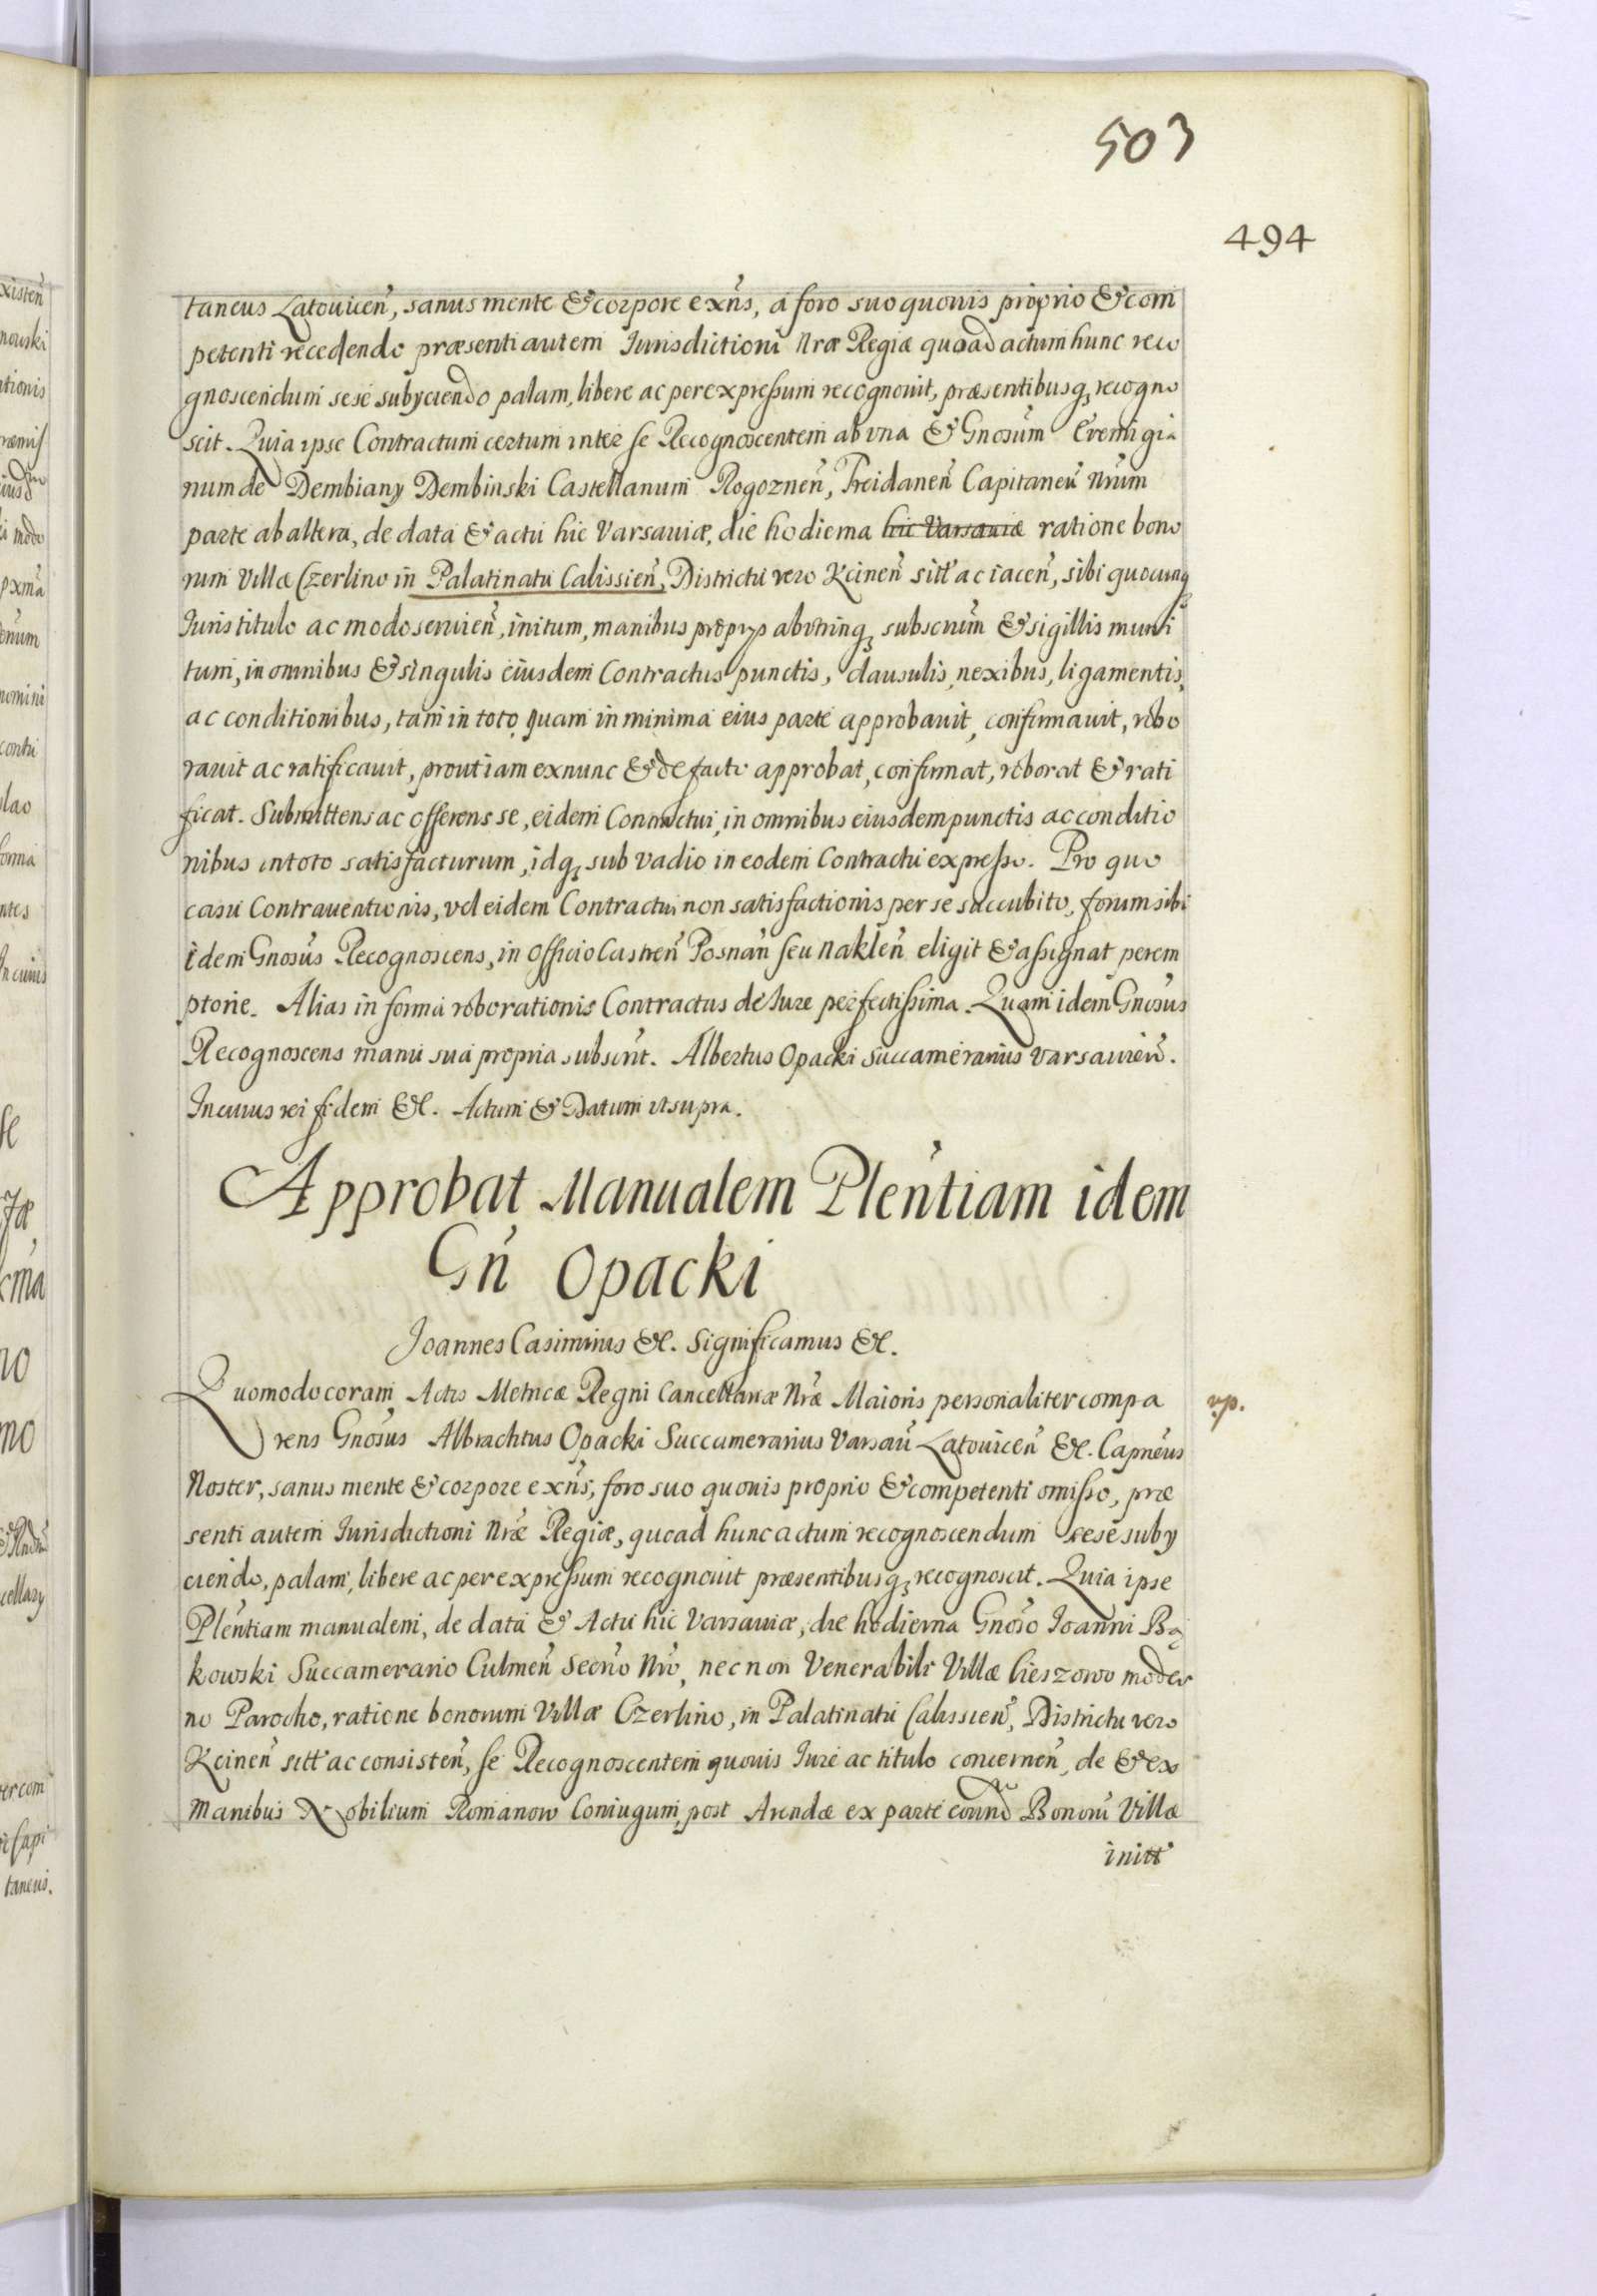 503
494
taneus Latouicen̄, sanus mente & corpore exn̄s, à foro suo quouis proprio & com
petenti recedendo præsenti autem Iurisdictioni Nræ Regiæ quoad actum hunc reco
gnoscendum sese subyciendo palam, libere ac per expressum recognouit, præsentibusq; recogno
scit. Quia ipse Contractum certum inter se Recognoscentem ab vna & Gnosum Eremigia
num de Dembiany Dembinski Castellanum Rogoznen̄, Freidanen̄ Capitaneū Nrum
parte ab altera, de data & actu hic Varsauiæ, die hodierna hic Varsauiæ ratione bono
rum Villæ Czerlino in Palatinatu Calissien̄, Districtu vero Kcinen̄ sitt' ac iacen̄, sibi quocunq;
Iuris titulo ac modo seruien̄, initum, manibus proprys abvtrinq; subscrūm & sigillis muni
tum, in omnibus & singulis eiusdem Contractus punctis, clausulis, nexibus, ligamentis,
ac conditionibus, tam in toto quam in minima eius parte approbauit, confirmauit, robo
rauit ac ratificauit, prout iam ex nunc & de facto approbat, confirmat, roborat & rati
ficat. Submittens ac offerens se, eidem Contractui, in omnibus eiusdem punctis ac conditio
nibus in toto satisfacturum, idq; sub vadio in eodem Contractu expresso. Pro quo
casu Contrauentionis, vel eidem Contractui non satisfactionis per se succubito, forum sibi
idem Gnosus Recognoscens, in Officio Castren̄ Posnan̄ seu Naklen̄ eligit & assignat perem
ptorie. Alias in forma roborationis Contractus de Iure perfectissima. Quam idem Gnosus
Recognoscens manu sua propria subscrit. Albertus Opacki Succamerarius Varsauien̄.
In cuius rei fidem &c. Actum & Datum vt supra.
Approbat Manualem Plen̄tiam idem
Gn̄ Opacki
Joannes Casimirus &c. Significamus &c.
Quomodo coram Actis Metricæ Regni Cancellariæ Nræ Maioris personaliter compa
rp.
rens Gnosus Albrachtus Opacki Succamerarius Varsau̅ Latouicen̄ &c. Capneus
Noster, sanus mente & corpore exn̄s, foro suo quouis proprio & competenti omisso, præ
senti autem Iurisdictioni Nræ Regiæ, quoad hunc actum recognoscendum sese suby
ciendo, palam, libere ac per expressum recognouit præsentibusq; recognoscit. Quia ipse
Plen̄tiam manualem, de data & Actu hic Varsauiæ, die hodierna Gnoso Ioanni Bą
kowski Succamerario Culmen̄ Secrio Nro, nec non Venerabili Villæ Cieszowo moder
no Parocho, ratione bonorum Villæ Czerlino, in Palatinatu Calissien̄, Districtu vero
Kcinen̄ sitt' ac consisten̄, se Recognoscentem quouis Iure ac titulo concernen̄, de & ex
manibus Nobilium Romanow Coniugum, post Arendæ ex parte eorund̄ Bonorū Villæ
initt'